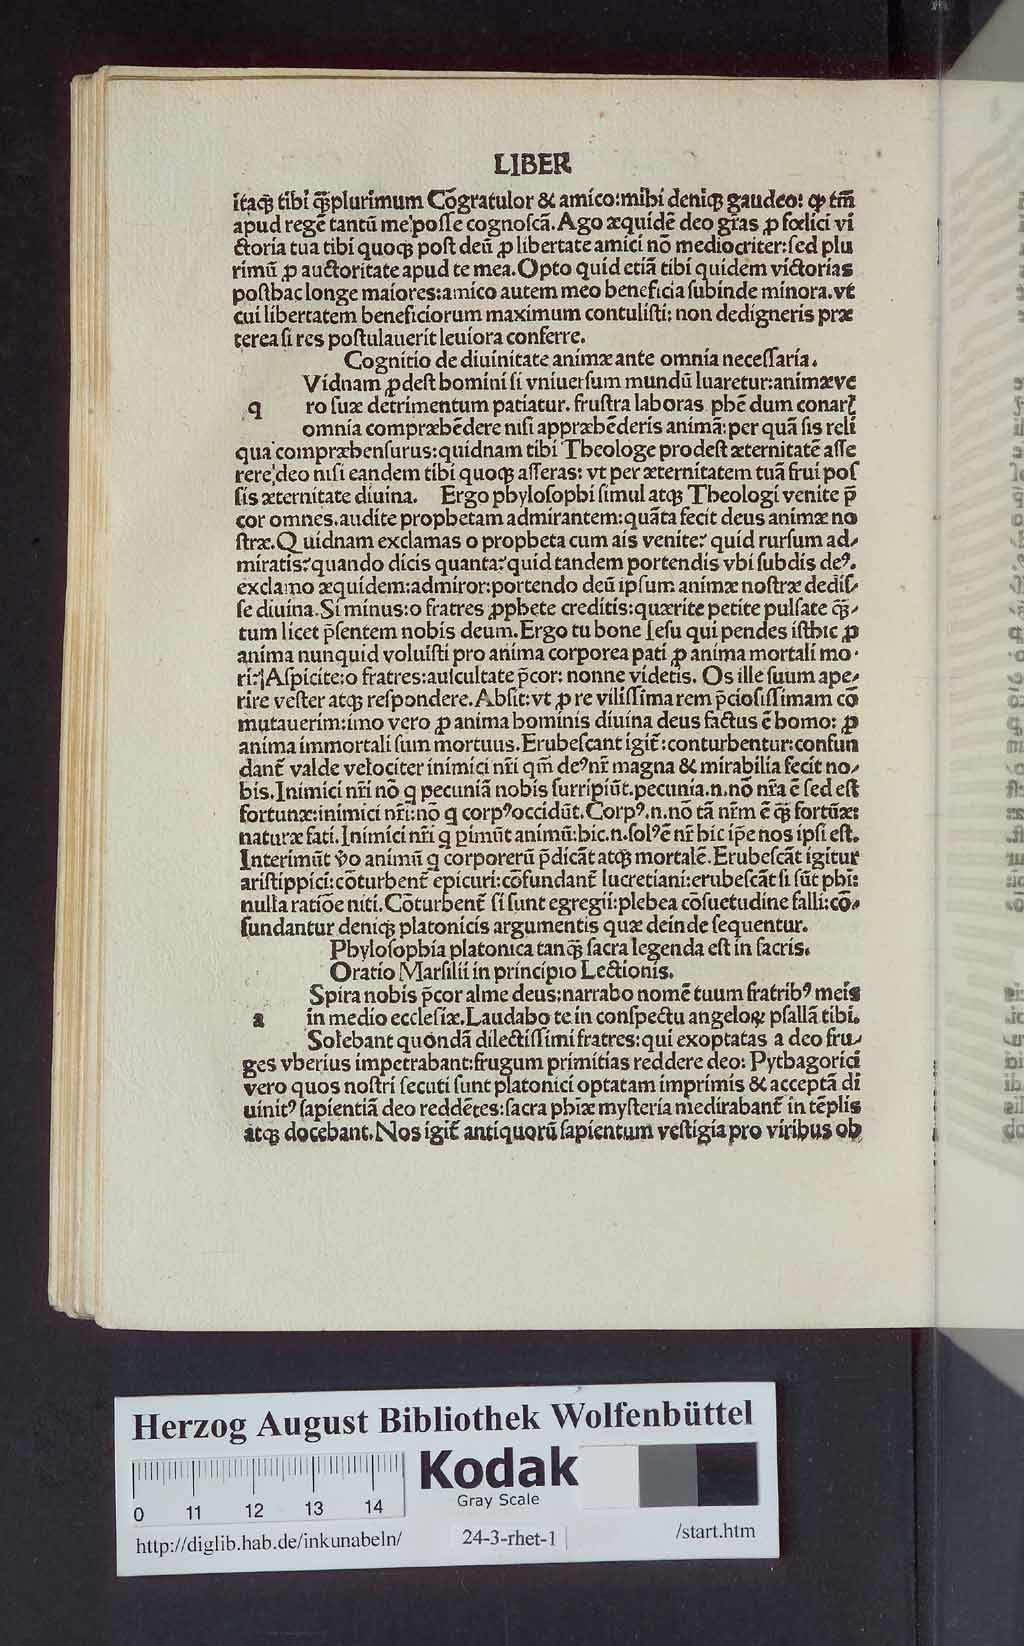 LIBER
itaqꝫ tibi q̃ꝫplurimum Cõgratulor & amico:mihi deniqꝫ gaudeo: ꝙ tm̃
apud regẽ tantũ me posse cognoscã. Ago æquidẽ deo grãs ꝓ fœlici vi
ctoria tua tibi quoqꝫ post deũ ꝓ libertate amici nõ mediocriter:sed plu
rimũ ꝓ auctoritate apud te mea. Opto quid etiã tibi quidem victorias
posthac longe maiores:amico autem meo beneficia subinde minora.vt
cui libertatem beneficiorum maximum contulisti: non dedigneris præ
terea si res postulauerit leuiora conferre.
Cognitio de diuinitate animæ ante omnia necessaria.
Vidnam ꝓdest homini si vniuersum mundũ luaretur:animæ ve
q ro suæ detrimentum patiatur. frustra laboras phẽ dum conarꝭ
omnia compræhẽdere nisi appræhẽderis animã:per quã sis reli
qua compræhensurus:quidnam tibi Theologe prodest æternitatẽ asse
rere deo nisi eandem tibi quoqꝫ asseras: vt per æternitatem tuã frui pos
sis æternitate diuina. Ergo phylosophi simul atqꝫ Theologi venite p̃
cor omnes.audite prophetam admirantem:quãta fecit deus animæ no
stræ. Quidnam exclamas o propheta cum ais venite? quid rursum ad⸗
miratis?quando dicis quanta?quid tandem portendis vbi subdis deꝰ.
exclamo æquidem:admiror:portendo deũ ipsum animæ nostræ dedis⸗
se diuina. Si minus:o fratres ꝓphete creditis:quærite petite pulsate q̃ꝫ⸗
tum licet p̃sentem nobis deum. Ergo tu bone Iesu qui pendes isthic ꝓ
anima nunquid voluisti pro anima corporea pati ꝓ anima mortali mo⸗
ri?Aspicite:o fratres:auscultate p̃cor: nonne videtis. Os ille suum ape⸗
rire vester atqꝫ respondere. Absit:vt ꝓ re vilissima rem p̃ciosissimam cõ
mutauerim:imo vero ꝓ anima hominis diuina deus factus ẽ homo: ꝓ
anima immortali sum mortuus. Erubescant igit̃:conturbentur:confun
dant̃ valde velociter inimici nr̃i qm̃ deꝰ nr̃ magna & mirabilia fecit no⸗
bis. Inimici nr̃i nõ q pecuniã nobis surripiũt.pecunia.n.nõ nr̃a ẽ sed est
fortunæ:inimici nr̃i:nõ q corpꝰ occidũt. Corpꝰ.n.nõ tã nr̃m ẽ q̃ꝫ fortũæ:
naturæ fati. Inimici nr̃i q ꝑimũt animũ:hic.n.solꝰ ẽ nr̃ hic ip̃e nos ipsi est.
Interimũt v̾o animũ q corporerũ p̃dicãt atqꝫ mortalẽ. Erubescãt igitur
aristippici:cõturbent̃ epicuri:cõfundant̃ lucretiani:erubescãt si sũt phi:
nulla ratiõe niti. Cõturbent̃ si sunt egregii:plebea cõsuetudine falli:cõ⸗
fundantur deniqꝫ platonicis argumentis quæ deinde sequentur.
Phylosophia platonica tanq̃ꝫ sacra legenda est in sacris.
Oratio Marsilii in principio Lectionis.
Spira nobis p̃cor alme deus:narrabo nomẽ tuum fratribꝰ meis
a in medio ecclesiæ. Laudabo te in conspectu angeloꝝ psallã tibi.
Solebant quondã dilectissimi fratres:qui exoptatas a deo fru⸗
ges vberius impetrabant:frugum primitias reddere deo: Pythagorici
vero quos nostri secuti sunt platonici optatam imprimis & acceptã di
uinitꝰ sapientiã deo reddẽtes:sacra phiæ mysteria medirabant̃ in tẽplis
atqꝫ docebant. Nos igit̃ antiquorũ sapientum vestigia pro viribus ob
Herzog August Bibliothek Wolfenbüttel
0 11 12 13 14
Kodak
Gray Scale
http://diglib.hab.de/inkunabeln/
24-3-rhet-1
/start.htm